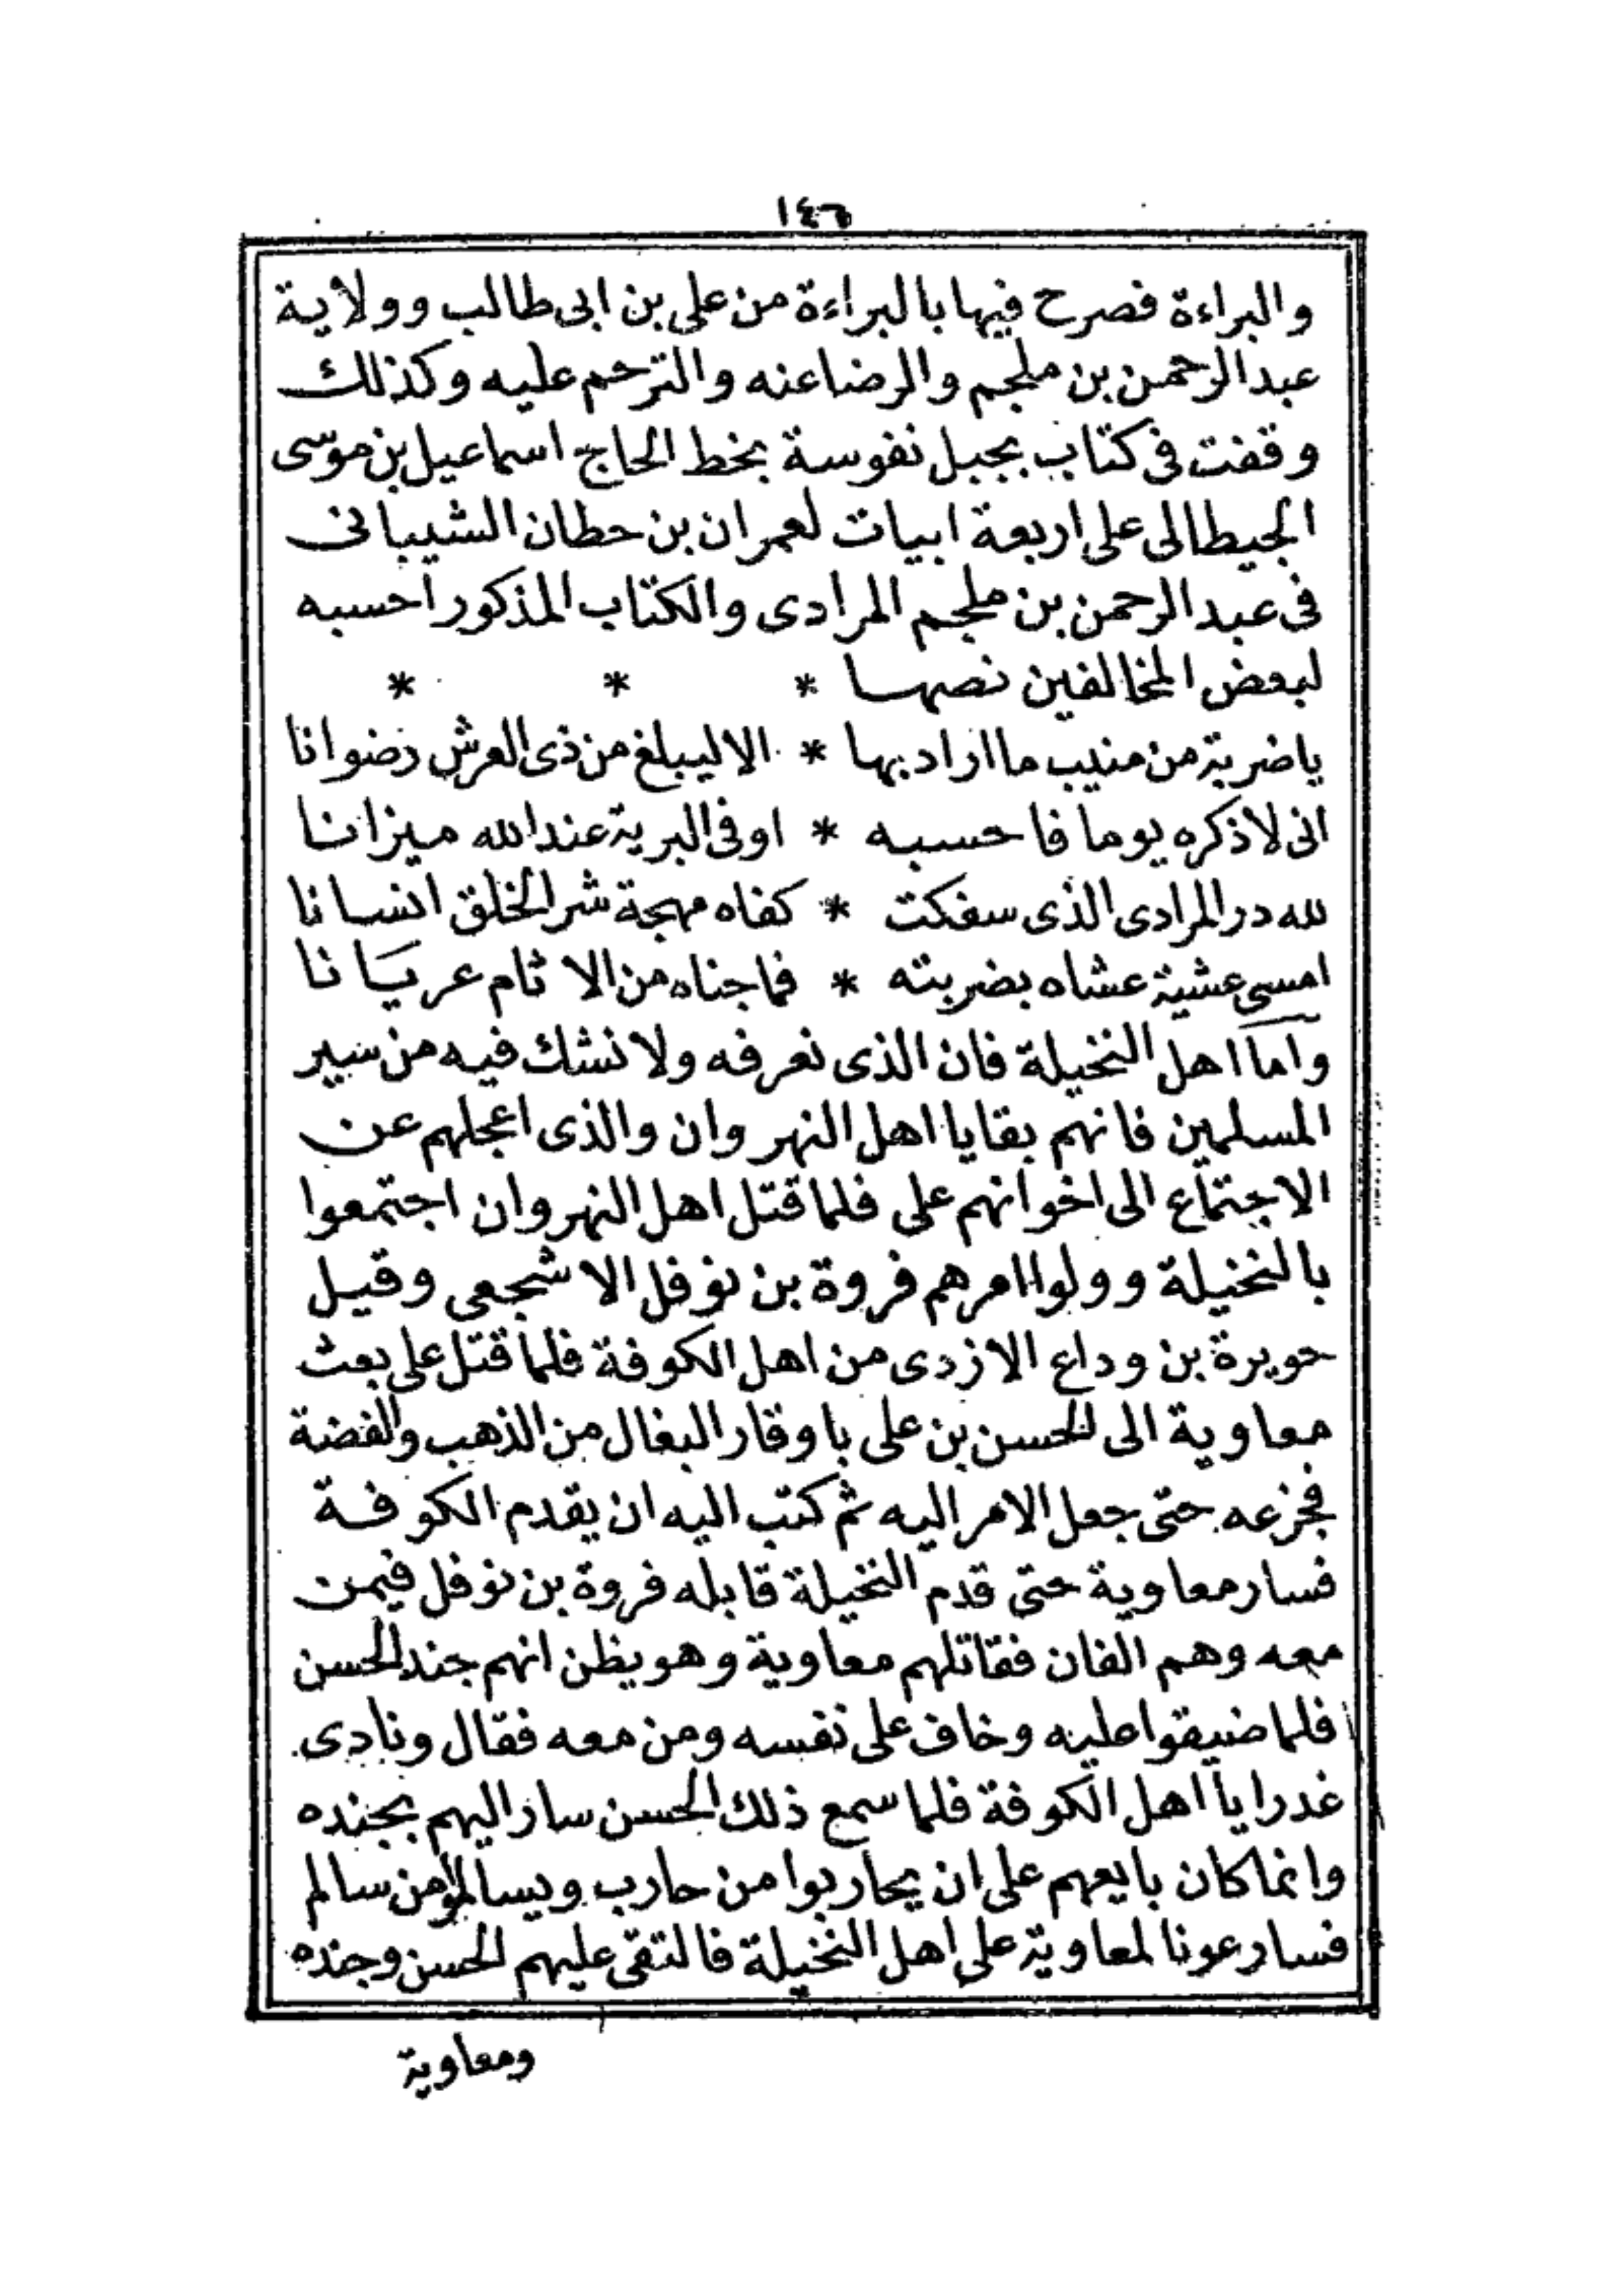 ١٤٦
والبراءة فصرح فيها بالبراءة من على بن ابى طالب وولاية
عبد الرحمن بن ملجم والرضا عنه والترحم عليه وكذلك
وقفت فى كتاب بجبل نفوسة بخط الحاج اسماعيل بن موسى
الجيطالى على اربعة ابيات لعمران بن حطان الشيبانى
فى عبد الرحمن بن ملجم المرادى والكتاب المذكور احسبه
لبعض المخالفين نصها * * *
ياضربة من منيب ما اراد بها * الا ليبلغ من ذى العرش رضوانا
انى لاذكره يوما فاحسبه * اوفى البرية عند الله ميزانا
لله در المرادى الذى سفكت * كفاه مهجة شر الخلق انسانا
امسى عشية عشاه بضربته * فما جناه من الاثام عريَانا
وامآ اهل النخيلة فان الذى نعرفه ولا نشك فيه من سير
المسلمين فانهم بقايا اهل النهروان والذى اعجلهم عن
الاجتماع الى اخوانهم على فلما قتل اهل النهروان اجتمعوا
بالنخيلة وولوا امرهم فروة بن نوفل الاشجعى وقيل
حويرة بن وداع الازدى من اهل الكوفة فلما قتل على بعث
معاوية الى الحسن بن على باوقار البغال من الذهب والفضة
فجزعه حتى جعل الامر اليه ثم كتب اليه ان يقدم الكوفة
فسار معاوية حتى قدم النخيلة قابله فروة بن نوفل فيمن
معه وهم الفان فقاتلهم معاوية وهو يظن انهم جند الحسن
فلما ضيقوا عليه وخاف على نفسه ومن معه فقال ونادى
غدرا يا اهل الكوفة فلما سمع ذلك الحسن سار اليهم بجنده
وانما كان بايعهم على ان يحاربوا من حارب ويسالموا من سالم
فسار عونا لمعاوية على اهل النخيلة فالتقى عليهم الحسن وجنده
ومعاوية